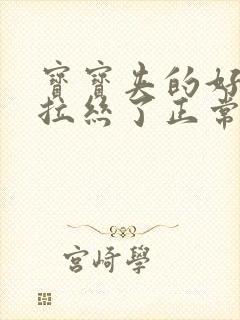 寶寶夹的好
拉絲了正常
宮崎學